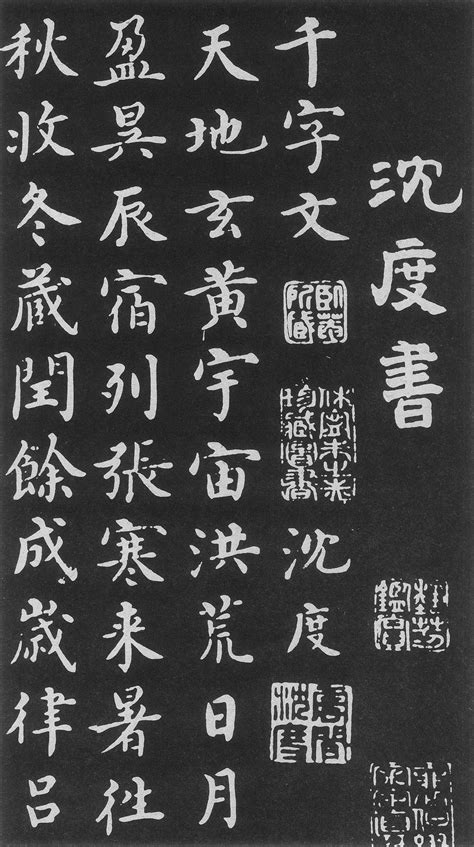 沈度書
千字文 沈度
天地玄黄宇宙洪荒日月
盈昃辰宿列張寒来暑徃
秋收冬藏閏餘成歳律呂